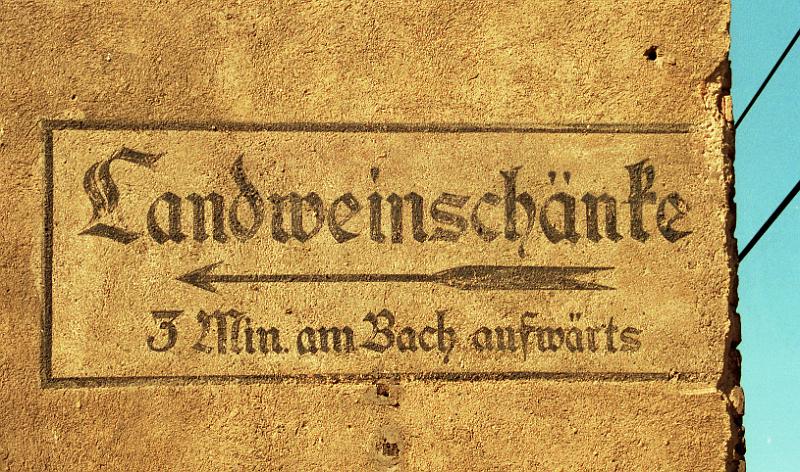 Landweinschänke
3 Min. am Bach aufwärts